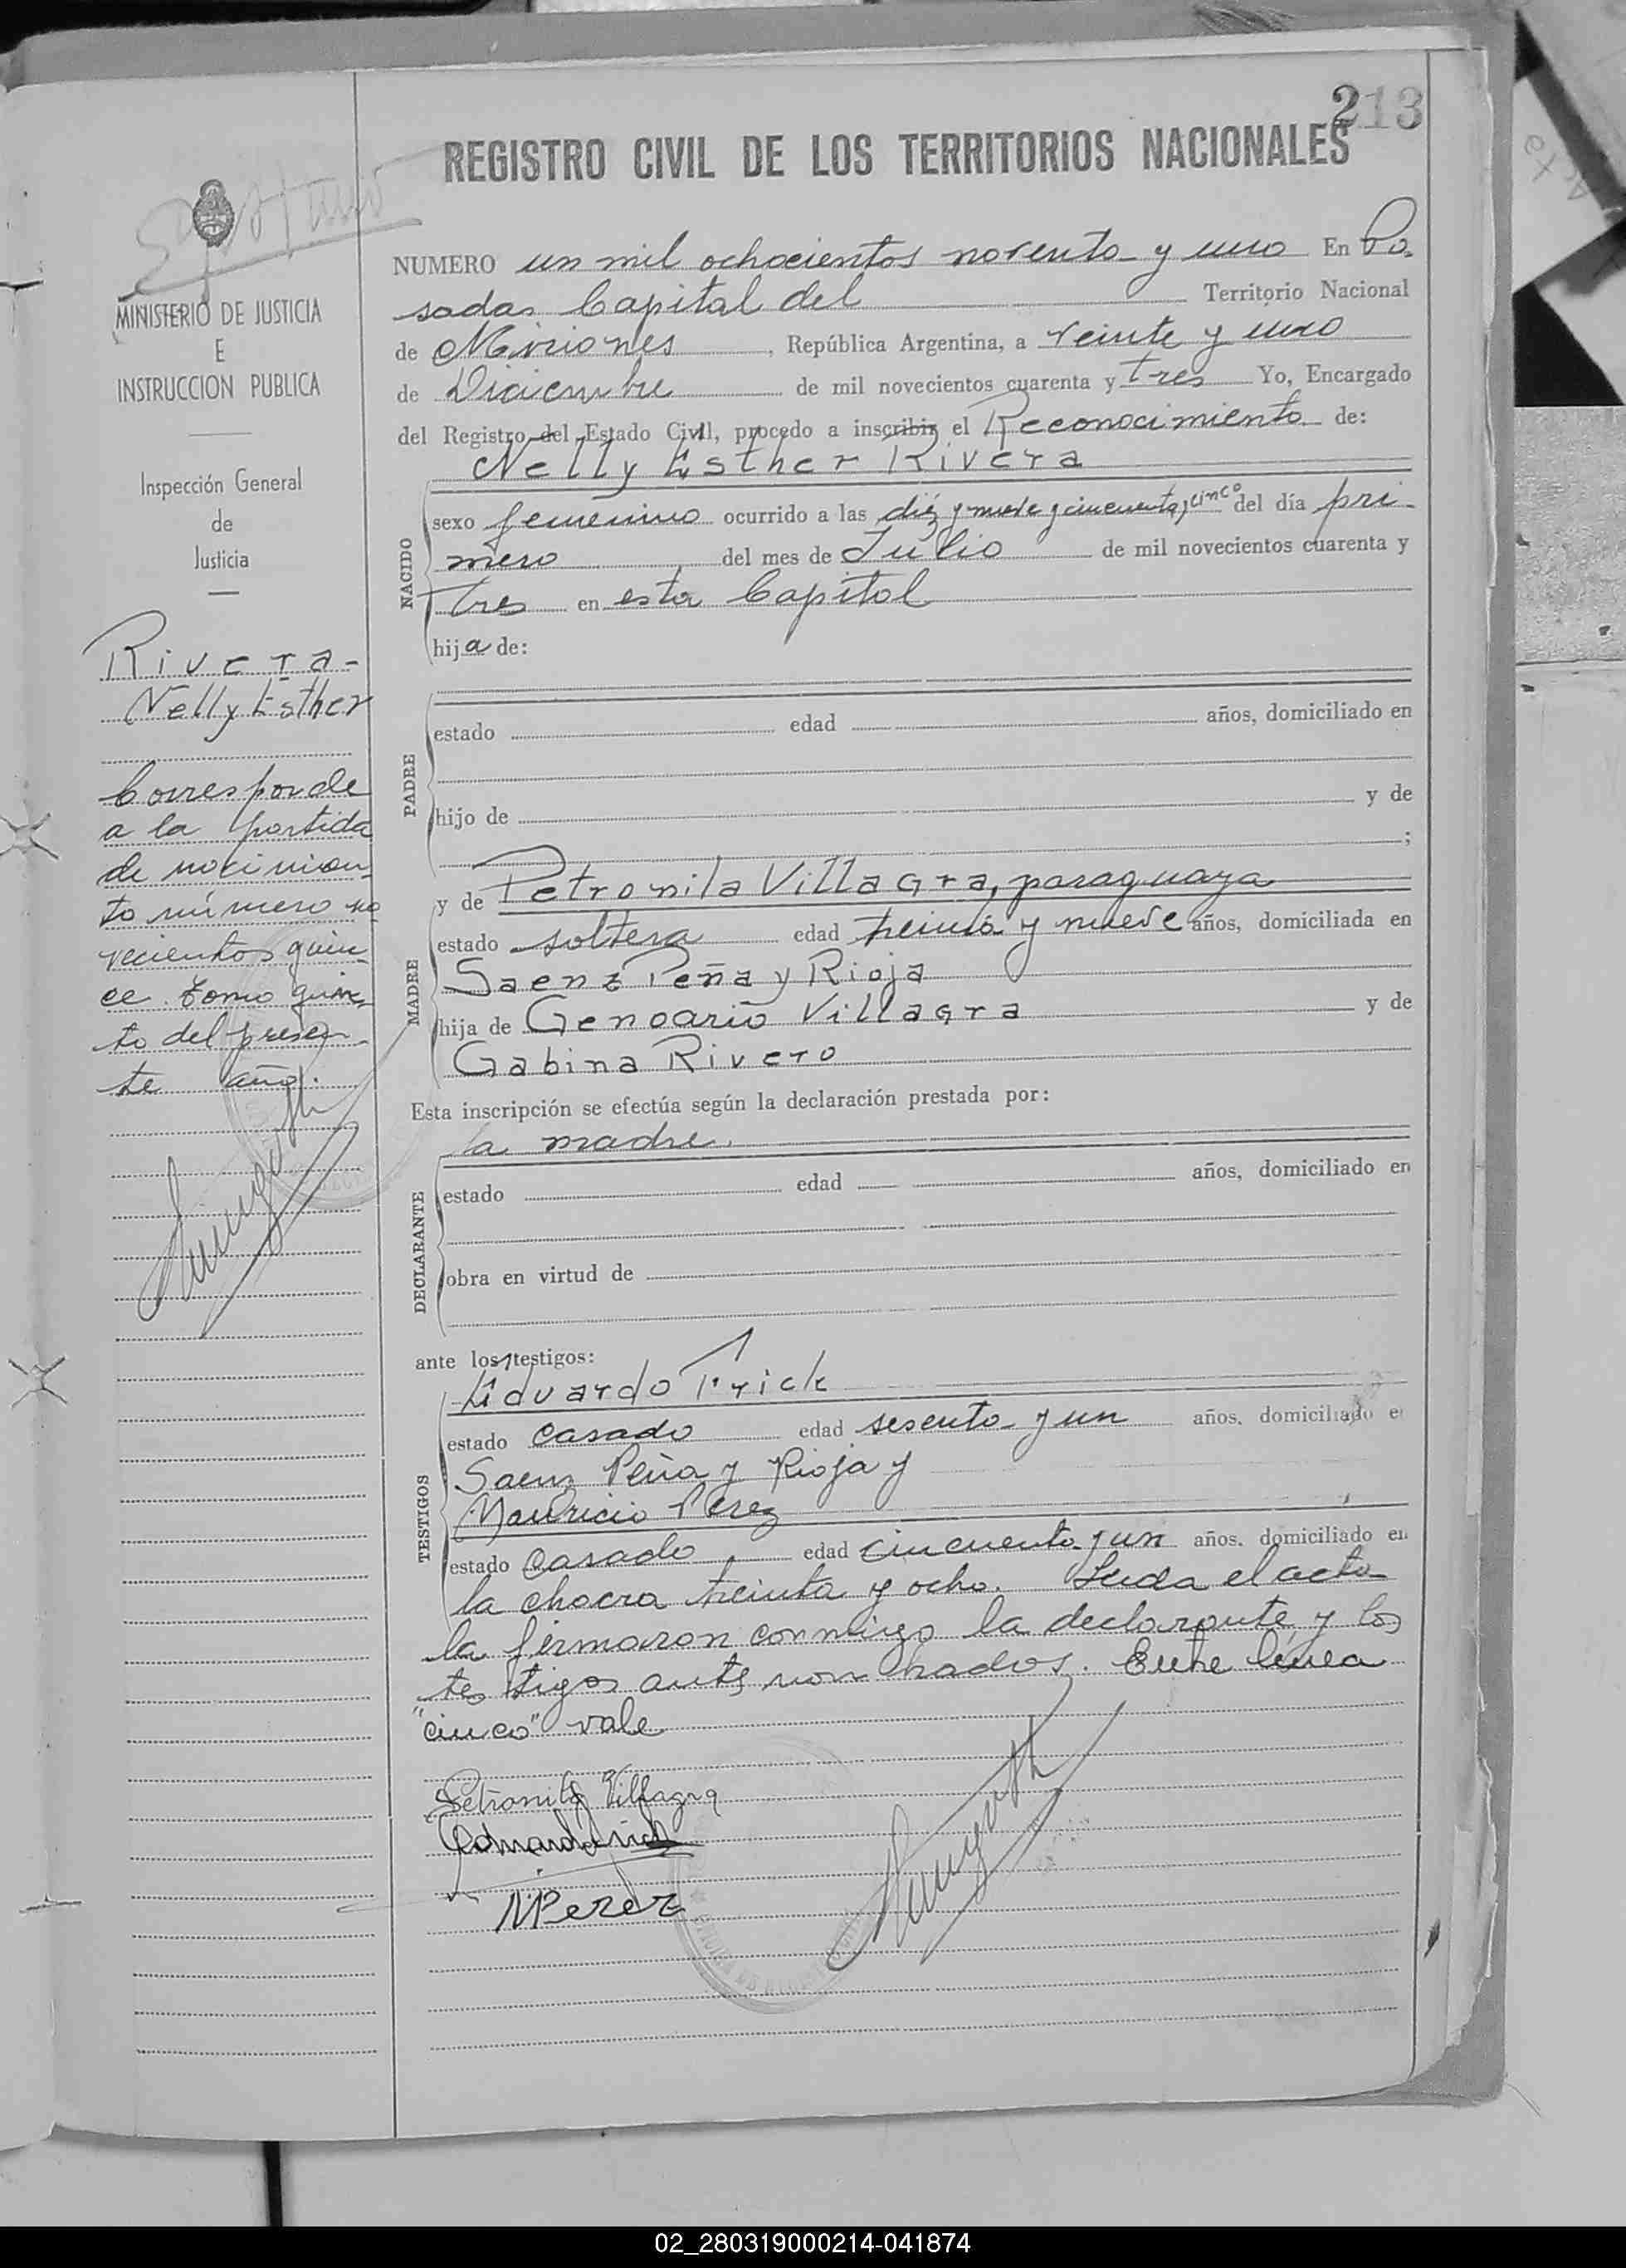 213
REGISTRO CIVIL DE LOS TERRITORIOS NACIONALES
NUMERO un mil ochocientos noventa y uno En Po-
sadas Capital del Territorio Nacional
de Misiones, República Argentina, a veinte y uno
de Diciembre de mil novecientos cuarenta y tres Yo, Encargado
del Registro del Estado Civil, procedo a inscribir el Reconocimiento de:
Nelly Esther Rivera
NACIDO
sexo femenino ocurrido a las diez y nueve y cincuenta y cinco del día pri-
mero del mes de Julio de mil novecientos cuarenta y
tres en esta Capital
hija de:
PADRE
estado edad años, domiciliado en
hijo de y de
;
y de Petronila Villagra, paraguaya
MADRE
estado soltera edad treinta y nueve años, domiciliada en
Saenz Peña y Rioja
hija de Genoario Villagra y de
Gabina Rivero
Esta inscripción se efectúa según la declaración prestada por:
la madre.
DECLARANTE
estado edad años, domiciliado en
obra en virtud de
ante los testigos:
Eduardo Frick
TESTIGOS
estado casado edad sesenta y un años, domiciliado e
Saenz Peña y Rioja y
Mauricio Perez
estado casado edad cincuenta y un años, domiciliado en
la chacra treinta y ocho. Leida el acta
la firmaron conmigo la declarante y los
testigos ante nombrados. Entre línea
"cinco" vale
Petronila Villagra
M Perez
MINISTERIO DE JUSTICIA
E
INSTRUCCION PUBLICA
Inspección General
de
Justicia
Rivera-
Nelly Esther
Corresponde
a la partida
de nacimien-
to número no-
vecientos quin-
ce tomo quin-
to del presen-
te año.
02_280319000214-041874